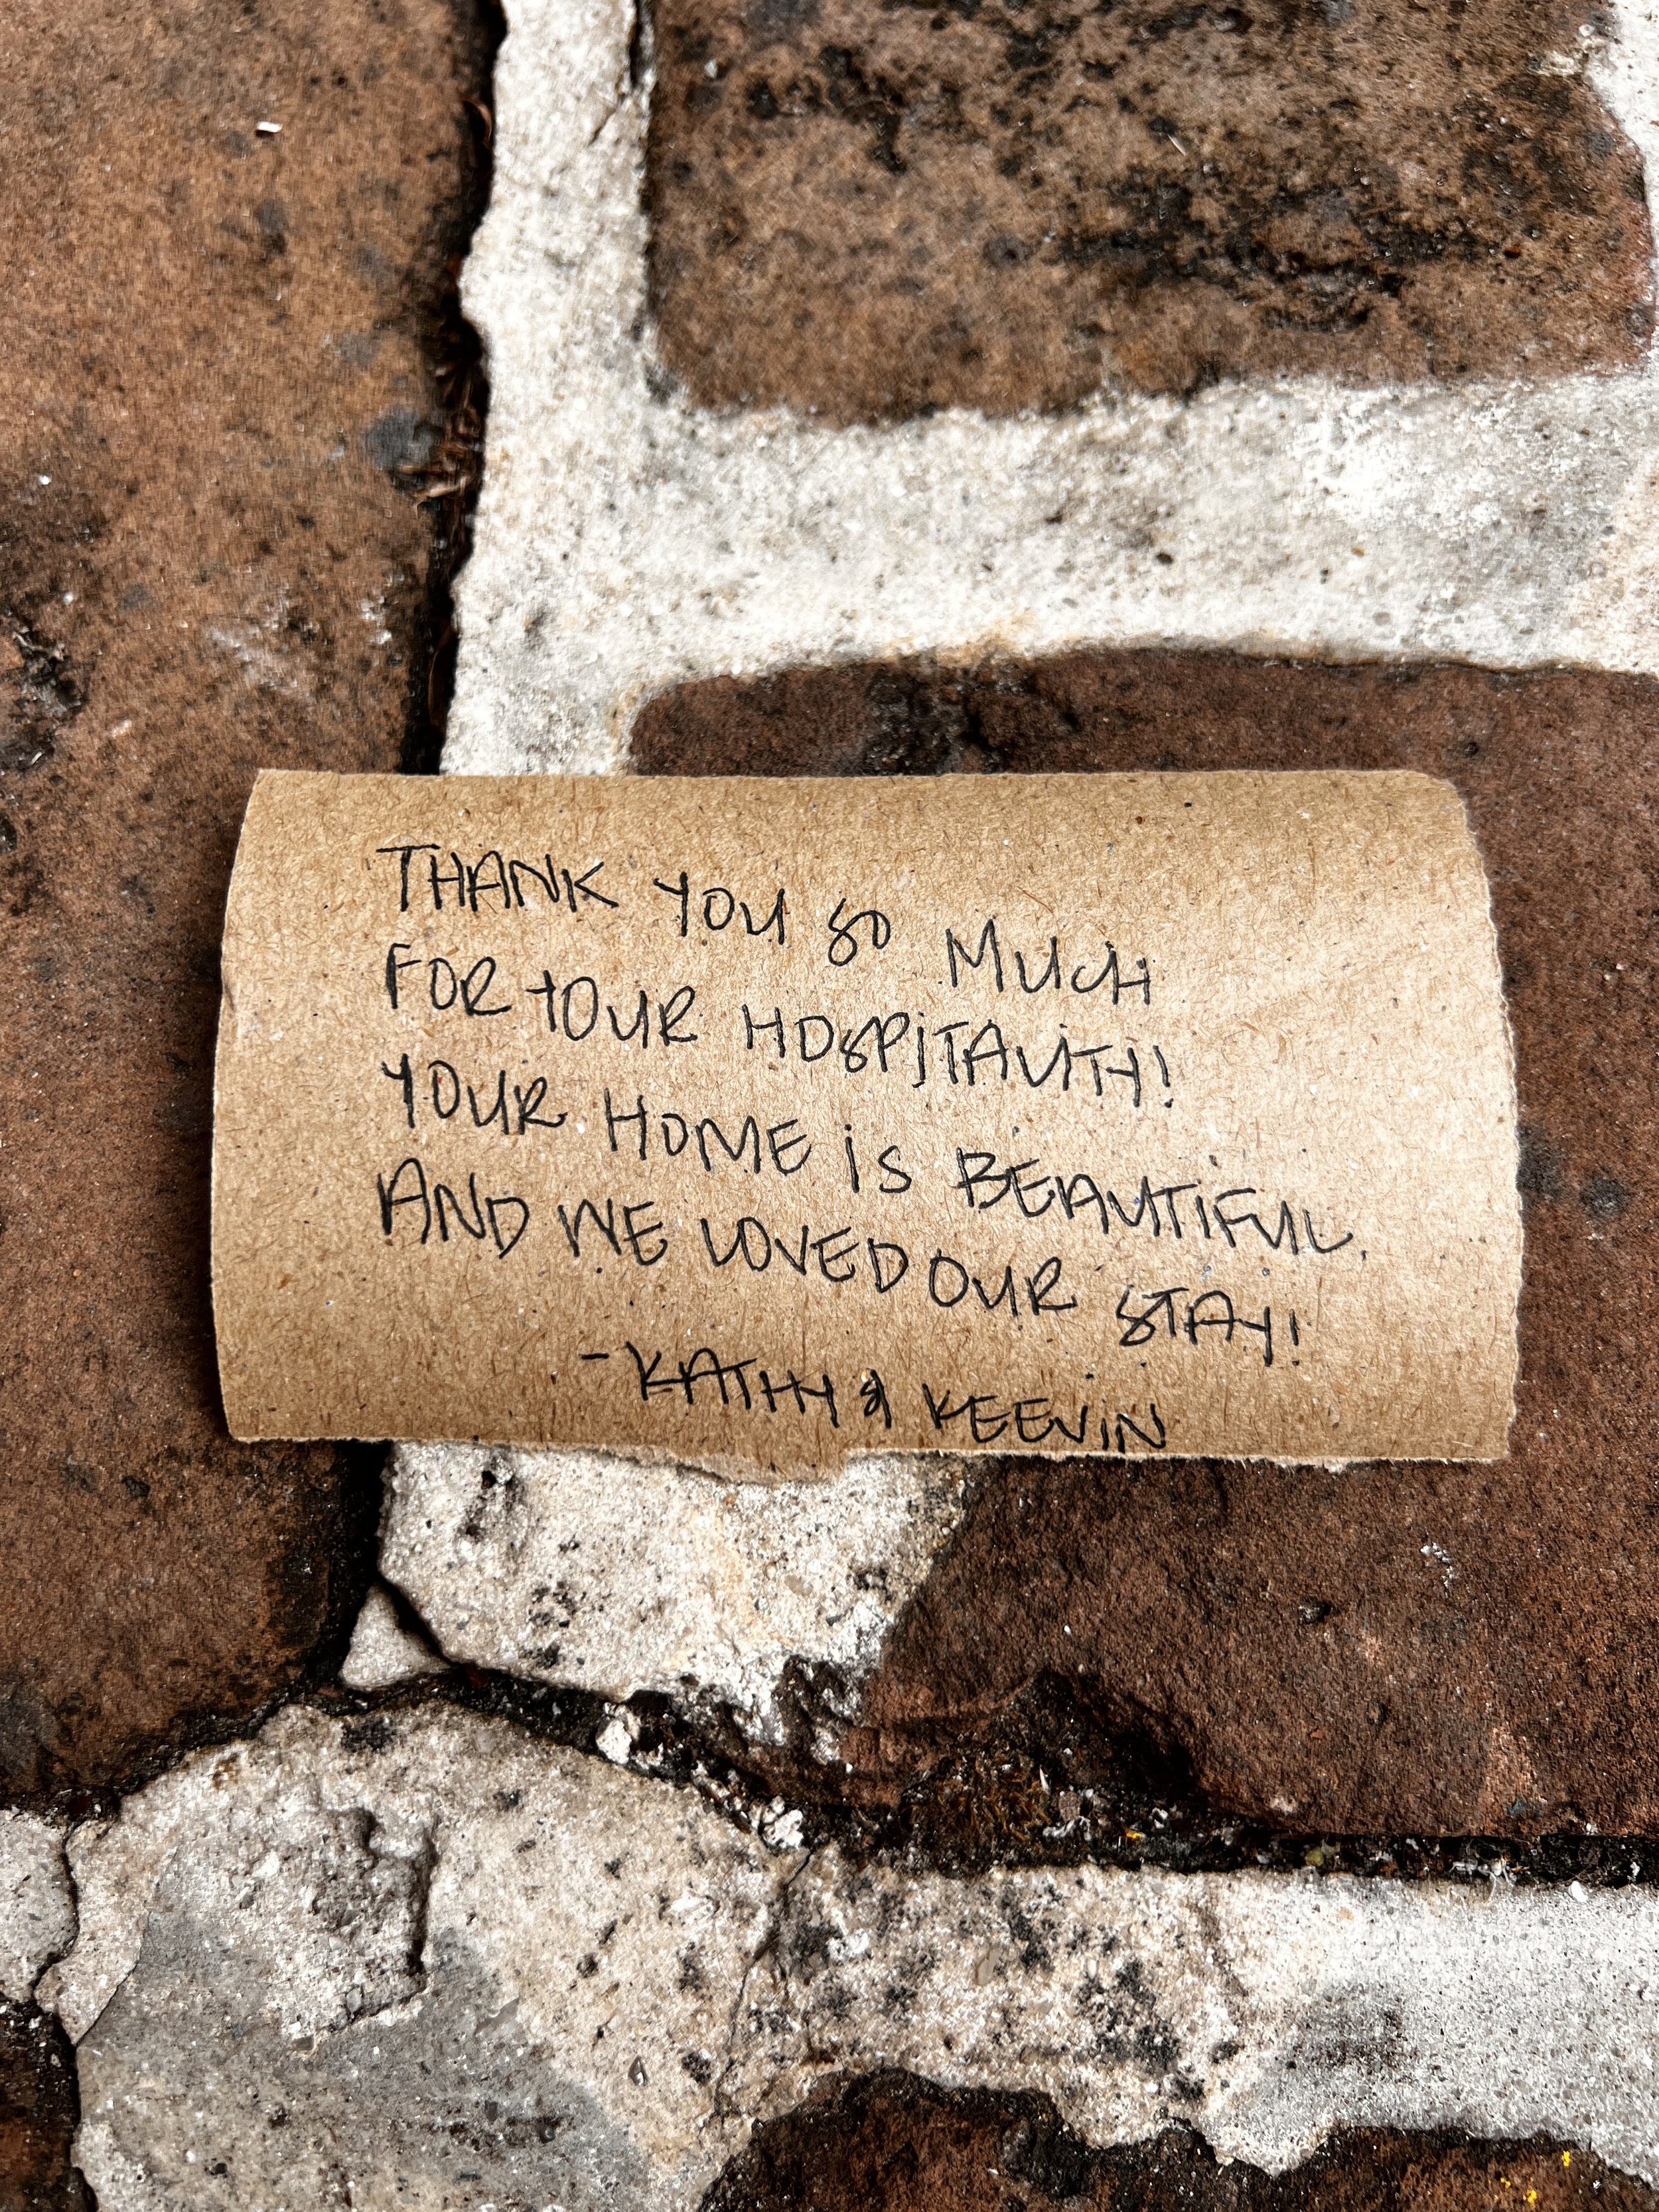 THANK YOU SO MUCH
FOR YOUR HOSPITALITY!
YOUR HOME iS BEAUTiFUL.
AND WE LOVED OUR STAY!
-KATHY & KEEViN